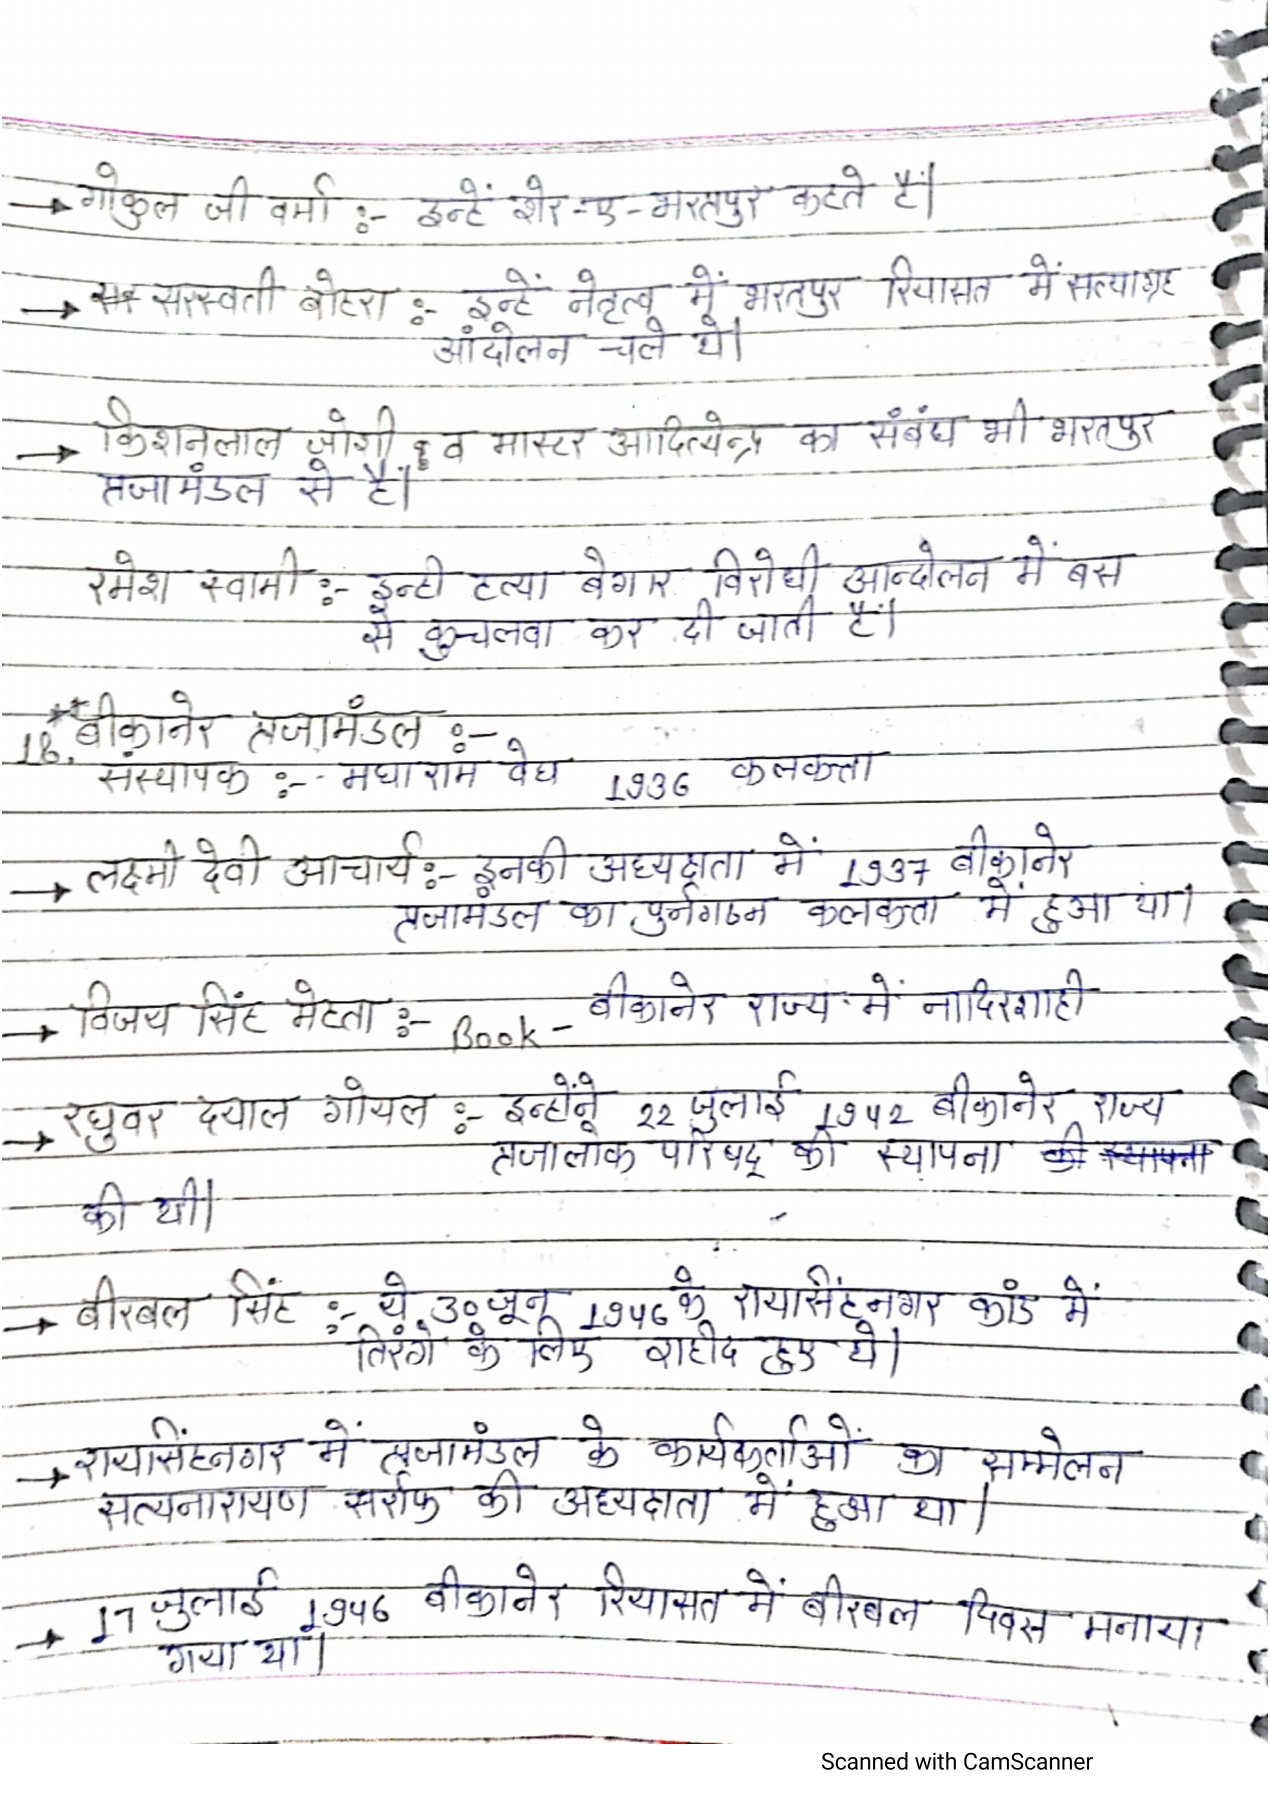 → गोकुल जी वर्मा :- इन्हें शेर-ए-भरतपुर कहते हैं।
→ सरस्वती बोहरा :- इन्हें नेतृत्व में भरतपुर रियासत में सत्याग्रह
आंदोलन चले थे।
→ किशनलाल जोशी व मास्टर आदित्येन्द्र का संबंध भी भरतपुर
प्रजामंडल से हैं।
रमेश स्वामी :- इन्ही हत्या बेगार विरोधी आन्दोलन में बस
से कुचलवा कर दी जाती हैं।
** 18. बीकानेर प्रजामंडल :-
संस्थापक :- मघाराम वेद्य 1936 कलकत्ता
→ लक्ष्मी देवी आचार्य :- इनकी अध्यक्षता में 1937 बीकानेर
प्रजामंडल का पुर्नगठन कलकत्ता में हुआ था।
→ विजय सिंह मेहता :- Book - बीकानेर राज्य में नादिरशाही
→ रघुवर दयाल गोयल :- इन्होंने 22 जुलाई 1942 बीकानेर राज्य
प्रजालोक परिषद् की स्थापना की स्थापना
की थी।
→ बीरबल सिंह :- ये 30 जून 1946 के रायसिंहनगर कांड में
तिरंगे के लिए शहीद हुए थे।
→ रायसिंहनगर में प्रजामंडल के कार्यकर्ताओं का सम्मेलन
सत्यनारायण सर्राफ की अध्यक्षता में हुआ था।
→ 17 जुलाई 1946 बीकानेर रियासत में बीरबल दिवस मनाया
गया था।
Scanned with CamScanner